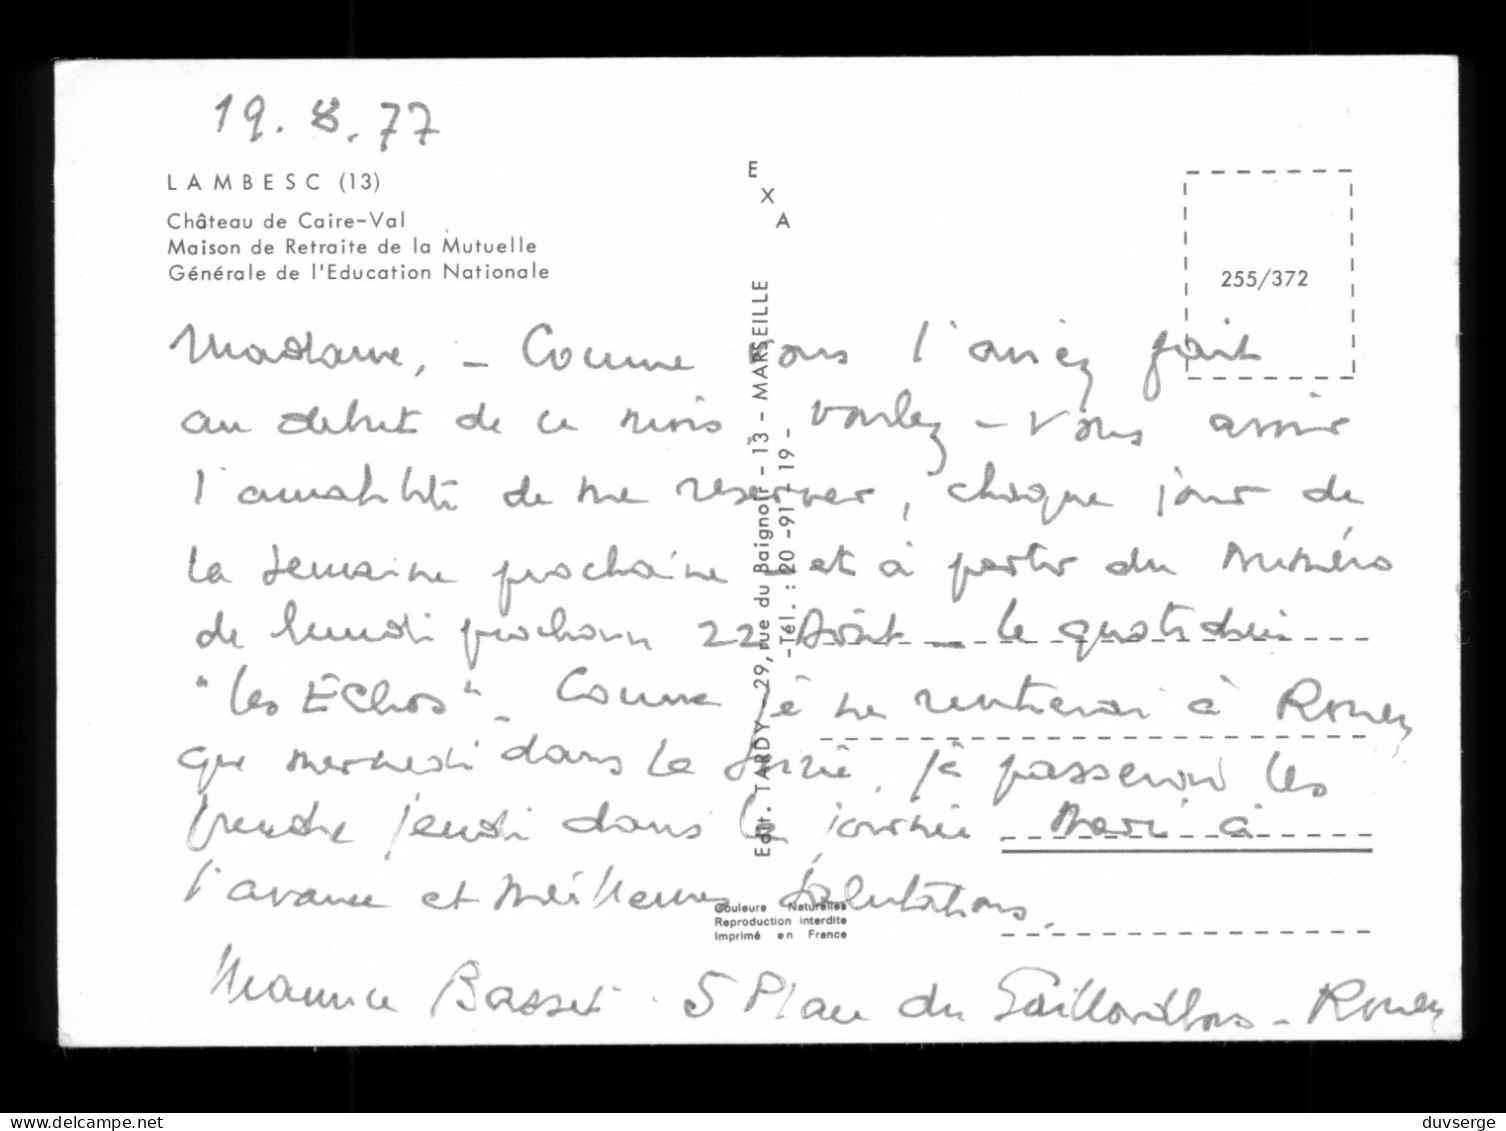 19.8.77
LAMBESC (13)
Château de Caire-Val
Maison de Retraite de la Mutuelle
Générale de l'Education Nationale
E
X
A
255/372
Edit. TARDY - 29, rue du Baignoir - 13 - MARSEILLE
- Tél. : 20-91-19 -
Madame, - Comme vous l'aviez fait
au début de ce mois voulez-vous avoir
l'amabilité de me réserver, chaque jour de
la semaine prochaine - et à partir du numéro
de lundi prochain 22 Août - le quotidien
"Les Echos". Comme je ne rentrerai à Rouen
que mercredi dans la soirée, je passerai les
prendre jeudi dans la journée. Merci à
l'avance et meilleures salutations.
Couleurs Naturelles
Reproduction interdite
Imprimé en France
Maurice Basset. 5 Place du Gaillardbois - Rouen
delcampe.net
duvserge